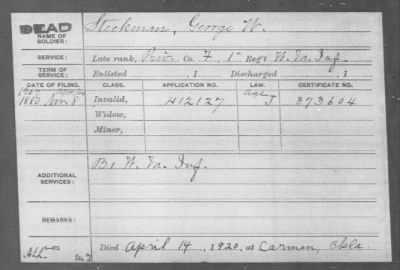 DEAD
NAME OF SOLDIER: Steekman, George W.
SERVICE: Late rank, Priv. Co. F, 1" Reg't W. Va. Inf.
TERM OF SERVICE: Enlisted , 1 Discharged , 1
DATE OF FILING. CLASS. APPLICATION NO. LAW. CERTIFICATE NO.
1907 Age
1880 Nov 8 Invalid, 412127 J 373604
Widow,
Minor,
ADDITIONAL SERVICES: W. Va. Inf.
REMARKS:
Died April 14, 1920, at Carmen, Okla.